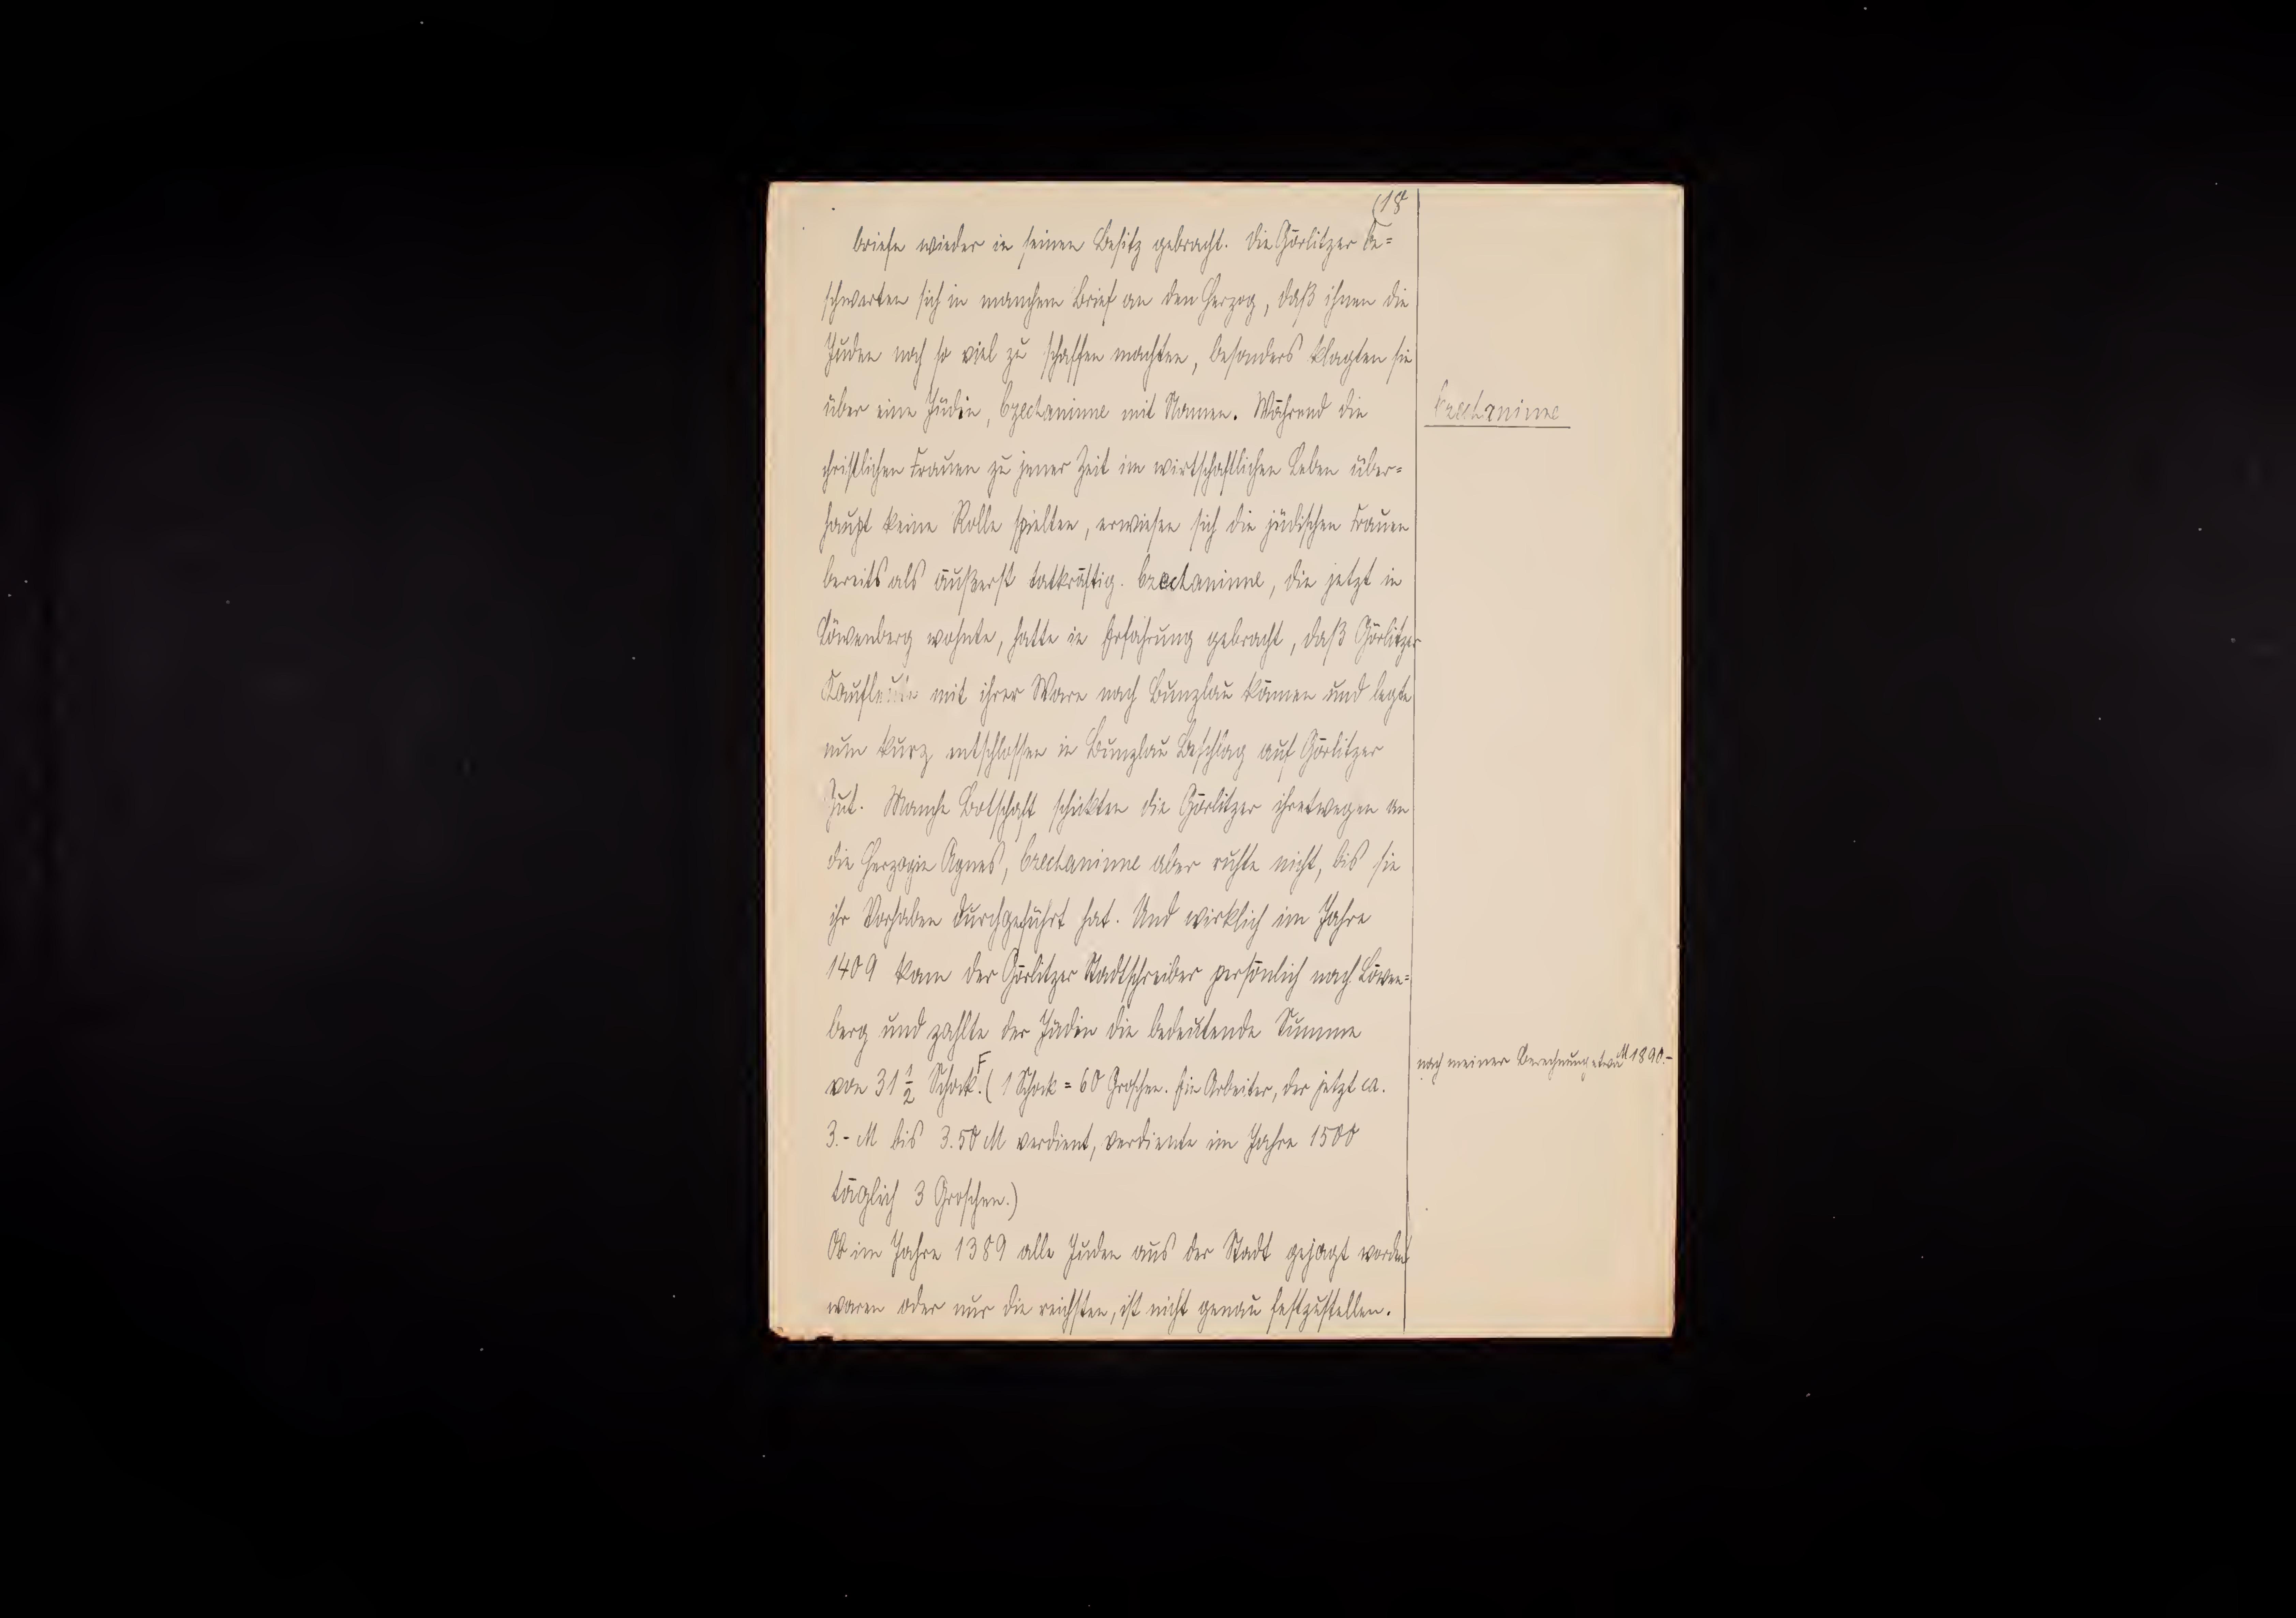 (18
briefe wieder in seinen Besitz gebracht. Die Görlitzer be=
schwerten sich in manchem Brief an den Herzog, daß ihnen die
Juden noch so viel zu schaffen machten, besonders klagten sie
über eine Jüdin, Czechaninne mit Namen. Während die
Czechaninne
christlichen Frauen zu jener Zeit im wirtschaftlichen Leben über=
haupt keine Rolle spielten, erwiesen sich die jüdischen Frauen
bereits als äußerst tatkräftig. Czechaninne, die jetzt in
Löwenberg wohnte, hatte in Erfahrung gebracht, daß Görlitzer
Kaufleute mit ihrer Ware nach Bunzlau kämen und legte
nun kurz entschlossen in Bunzlau Beschlag auf Görlitzer
Gut. Manche Botschaft schickten die Görlitzer ihretwegen an
die Herzogin Agnes, Czechaninne aber ruhte nicht, bis sie
ihr Vorhaben durchgeführt hat. Und wirklich im Jahre
1409 kam der Görlitzer Stadtschreiber persönlich nach Löwen=
berg und zahlte der Jüdin die bedeutende Summe
von 31 1/2 Schock.F (1 Schock = 60 Groschen. Ein Arbeiter, der jetzt ca.
nach meiner Berechnung etwa M 1890.-
3.- M bis 3.50 M verdient, verdiente im Jahre 1500
täglich 3 Groschen.)
Ob im Jahre 1389 alle Juden aus der Stadt gejagt worden
waren oder nur die reichsten, ist nicht genau festzustellen.